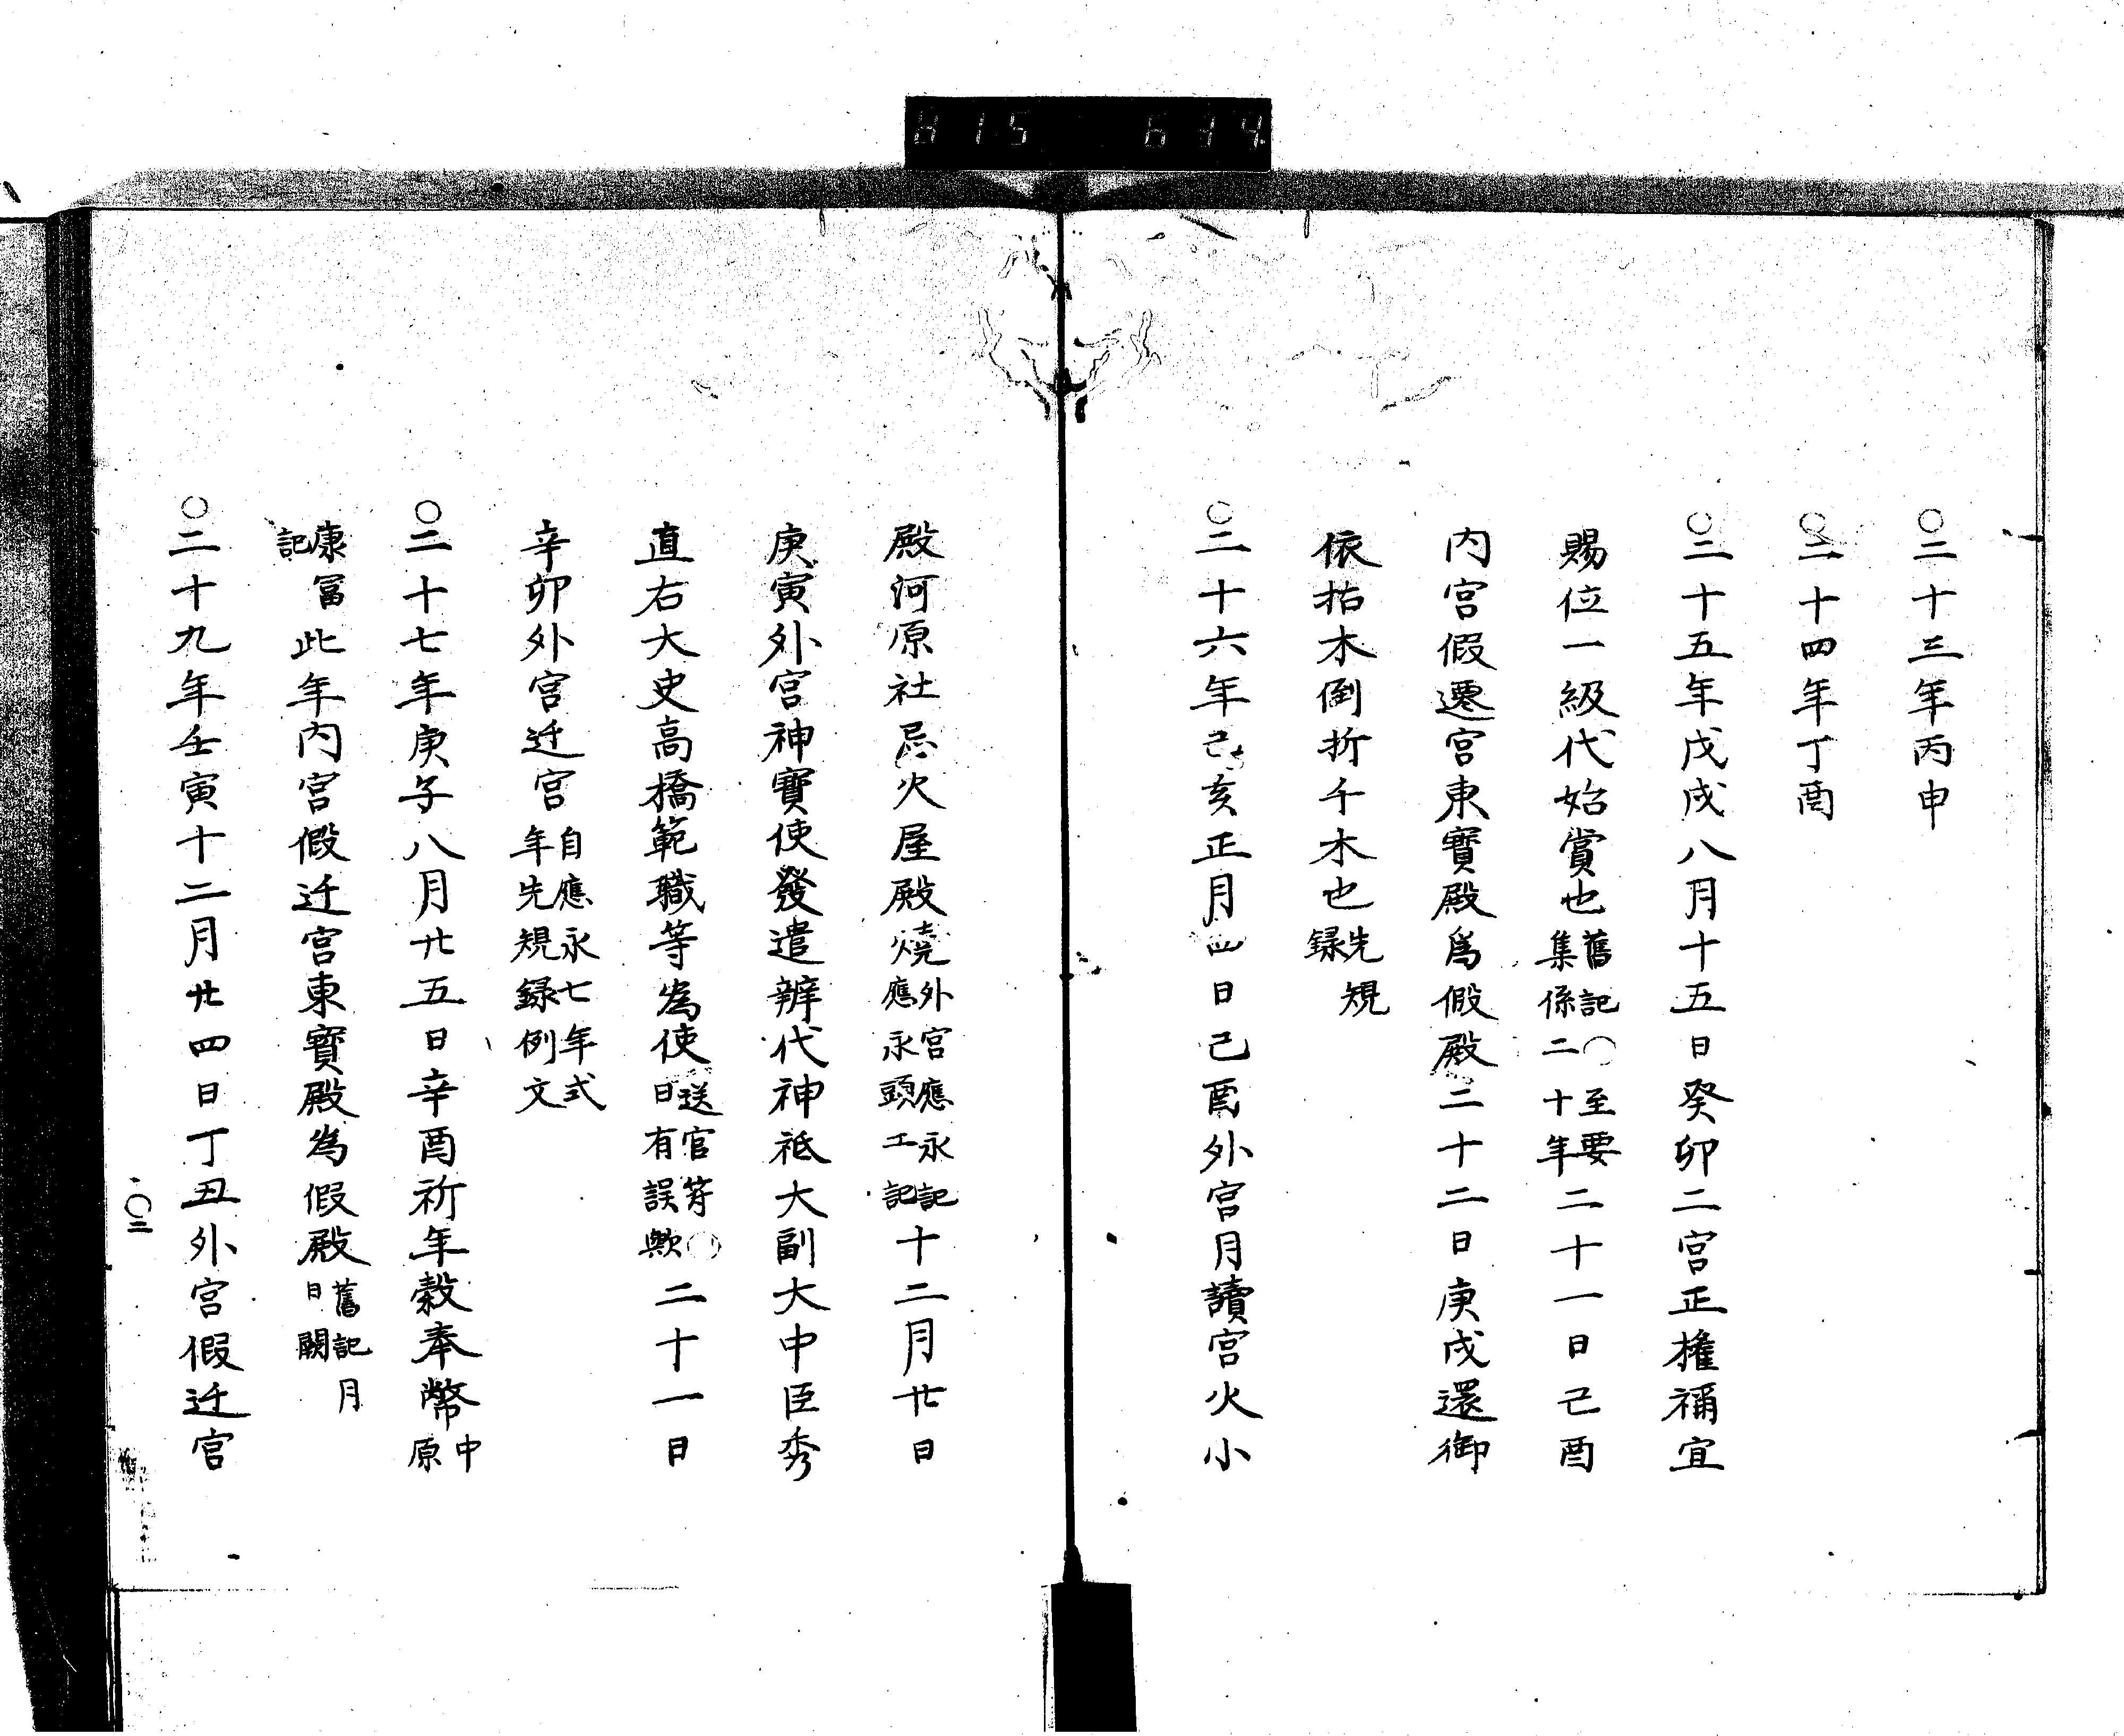 〇二十三年丙申
〇二十四年丁酉
〇二十五年戊戌八月十五日癸卯二宮正権禰宜
賜位一級代始賞也舊記〇至要集係二十年二十一日己酉
内宮假遷宮東寳殿爲假殿二十二日庚戌還御
依枯木倒折千木也先規録
〇二十六年己亥正月四日己酉外宮月讀宮火小
殿河原社忌火屋殿燒外宮應永記應永頭工記十二月廿日
庚寅外宮神寳使發遣辨代神祇大副大中臣秀
直右大史高橋範職等為使送官符〇日有誤歟二十一日
辛卯外宮迁宮自應永七年式年先規録例文
〇二十七年庚子八月廿五日辛酉祈年穀奉幣中原
康冨記此年内宮假迁宮東寳殿為假殿舊記月日闕
〇二十九年壬寅十二月廿四日丁丑外宮假迁宮
〇二
815 614